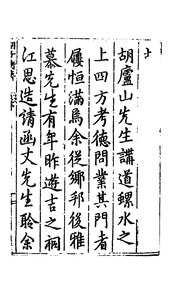 胡廬山先生講道螺水之
上四方考德問業其門者
屨恒滿焉余從鄉邦後雅
慕先生有年昨遊吉之桐
江思造請函丈先生聆余